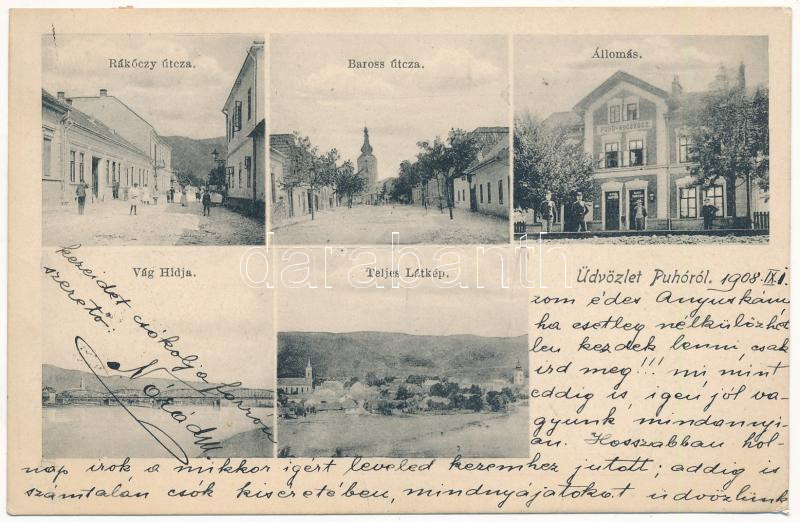 Rákóczy útcza.
Baross útcza.
Állomás.
PUHÓ-KOCSKÓCZ
Vág Hidja.
Teljes Látkép.
darabanth
Üdvözlet Puhóról. 1908. IX. 1.
zom édes Anyuskám
ha esetleg nélkülözhet
len kezdek lenni, csak
ird meg!!! mi mint
eddig is, igen jól va-
gyunk mindannyi-
an. Hosszabban hol-
nap irok a mikkor igért leveled kezemhez jutott; addig is
számtalan csók kiséretében, mindnyájatokat üdvözlünk
kezeidet csókolja forrón
szerető:
Nórád